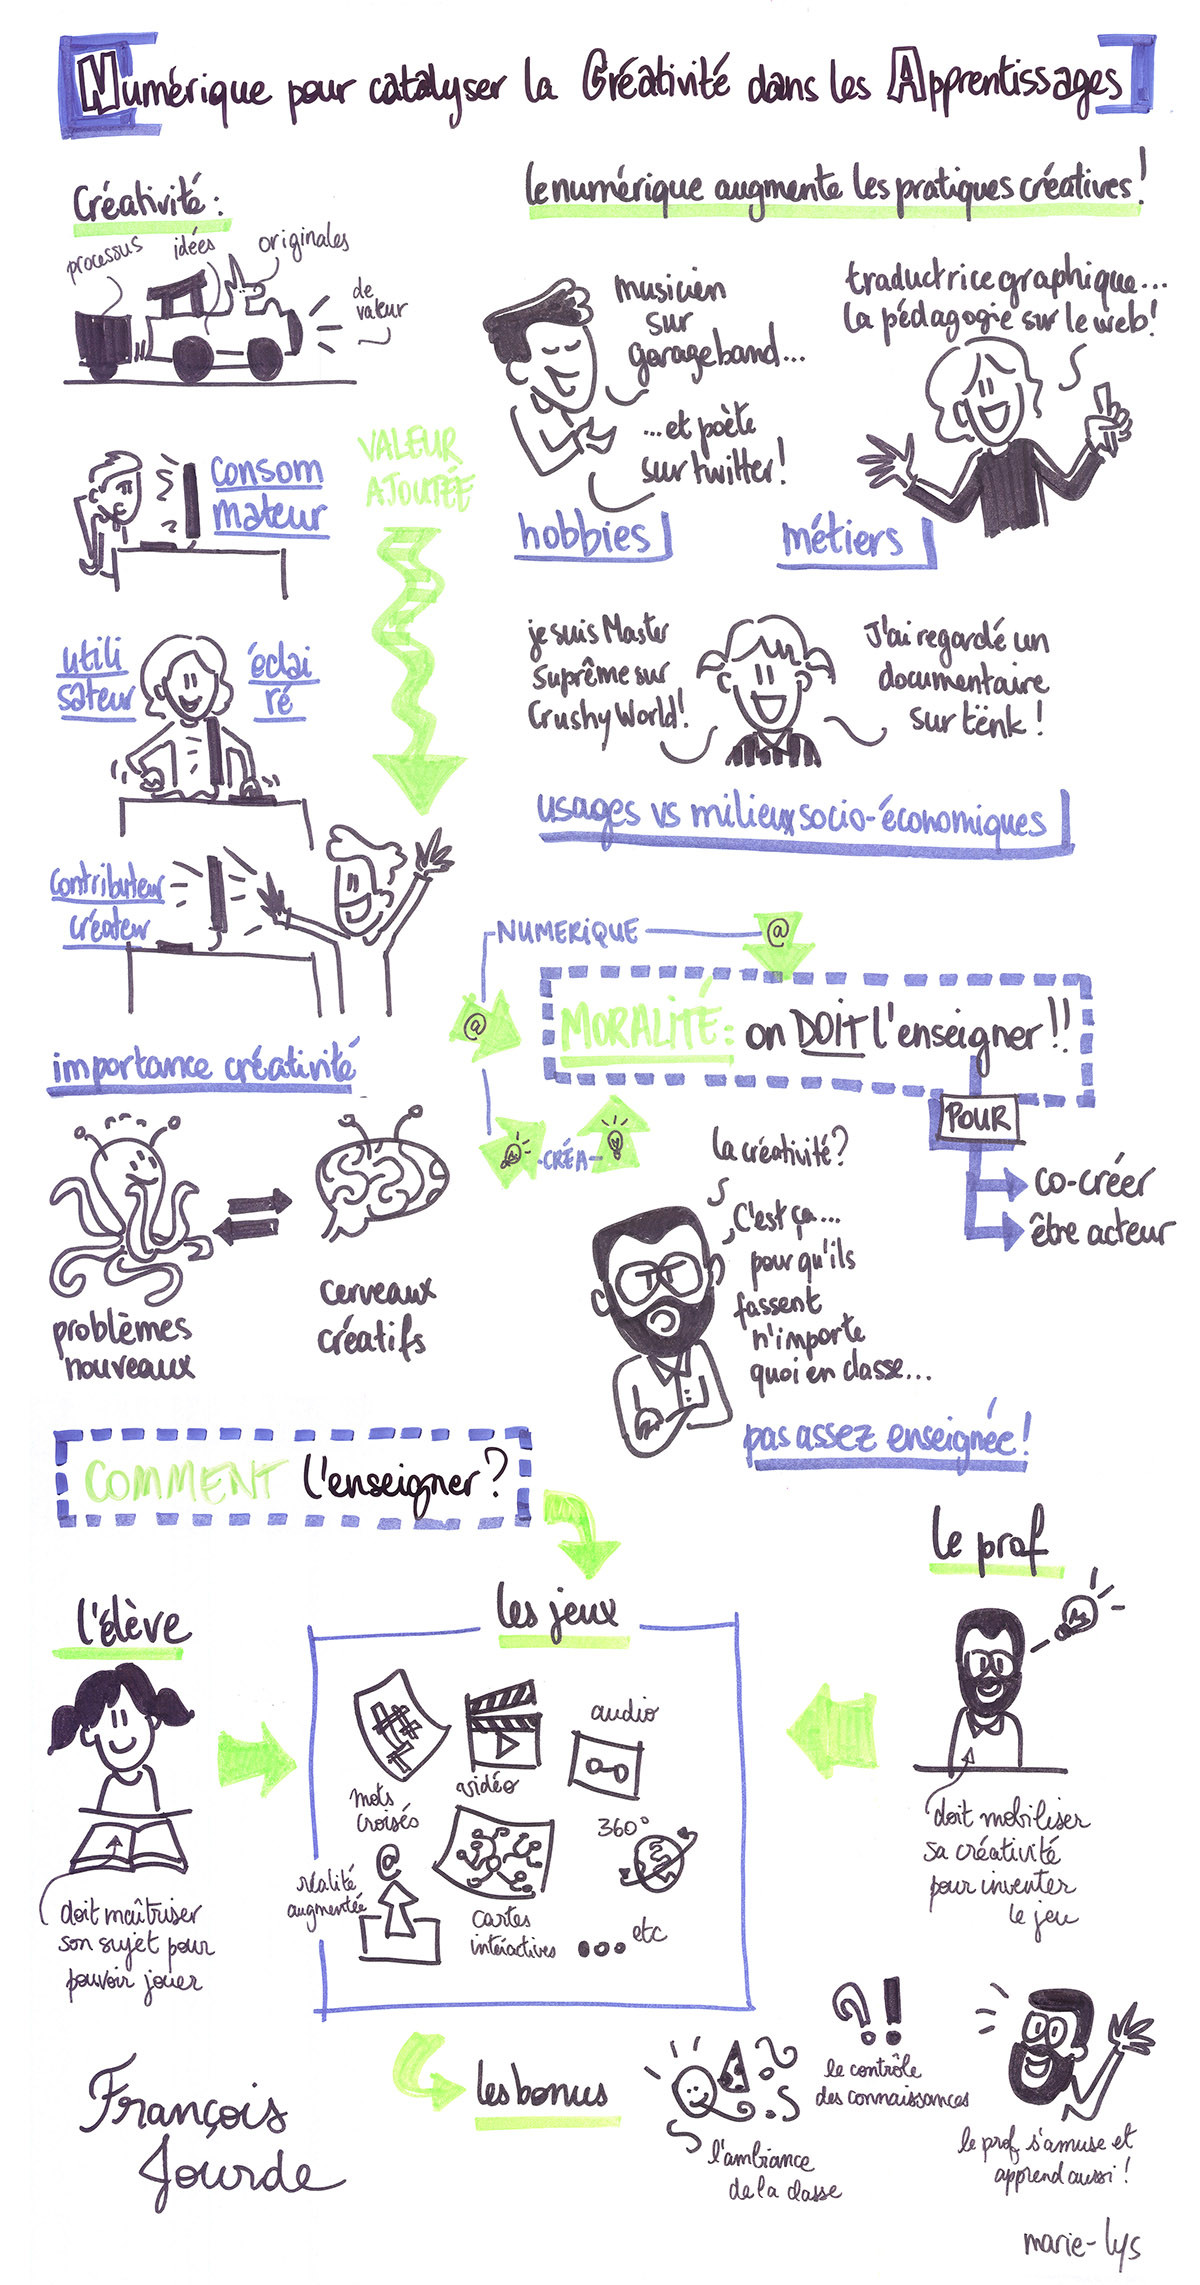 Numérique pour catalyser la Créativité dans les Apprentissages
Créativité :
processus
idées
originales
de
valeur
le numérique augmente les pratiques créatives !
musicien
sur
garageband...
...et poète
sur twitter !
hobbies
traductrice graphique...
la pédagogie sur le web !
métiers
VALEUR
AJOUTÉE
consom
mateur
utili
sateur
éclai
ré
contributeur
créateur
je suis Master
suprême sur
Crushy World !
J'ai regardé un
documentaire
sur tënk !
usages vs milieux socio-économiques
NUMERIQUE
@
@
CRÉA
MORALITÉ : on DOIT l'enseigner !!
POUR
co-créer
être acteur
importance créativité
problèmes
nouveaux
cerveaux
créatifs
la créativité ?
C'est ça...
pour qu'ils
fassent
n'importe
quoi en classe...
pas assez enseignée !
COMMENT l'enseigner ?
l'élève
doit maîtriser
son sujet pour
pouvoir jouer
les jeux
mots
croisés
vidéo
audio
réalité
augmentée
@
cartes
intéractives
360°
etc
le prof
doit mobiliser
sa créativité
pour inventer
le jeu
les bonus
l'ambiance
de la classe
?!
le contrôle
des connaissances
le prof s'amuse et
apprend aussi !
François
Jourde
marie-lys